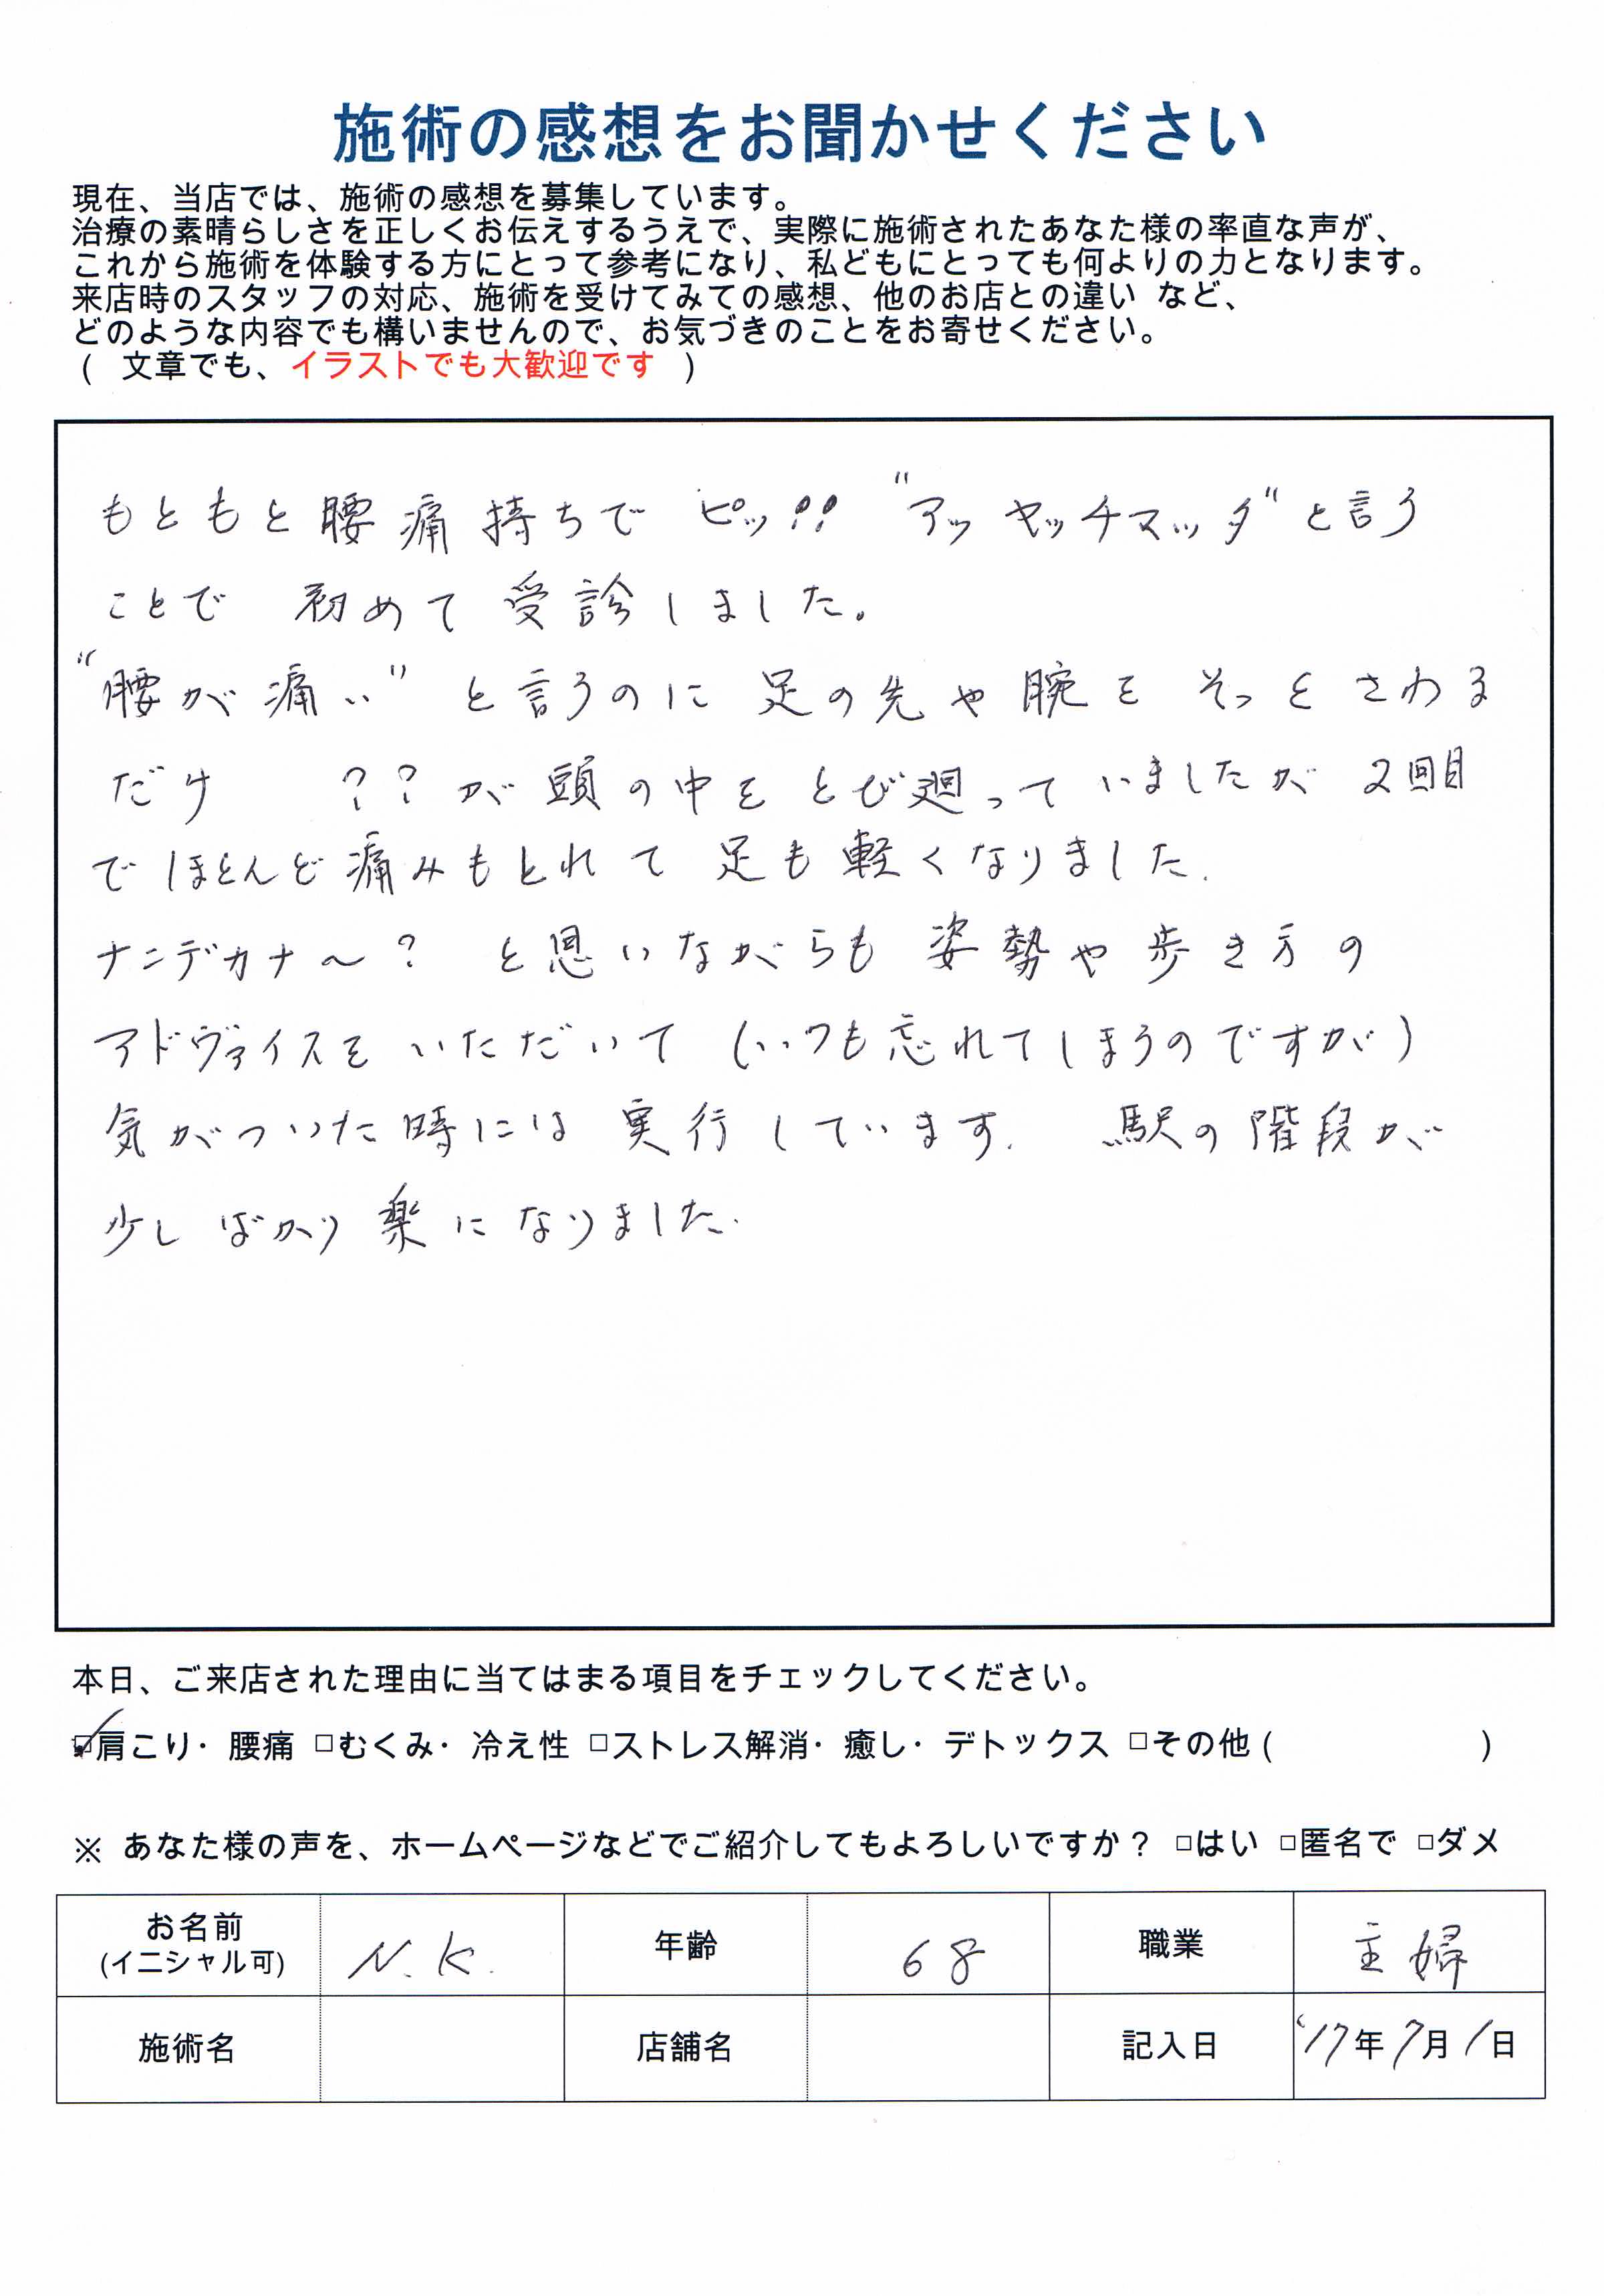 施術の感想をお聞かせください
現在、当店では、施術の感想を募集しています。
治療の素晴らしさを正しくお伝えするうえで、実際に施術されたあなた様の率直な声が、
これから施術を体験する方にとって参考になり、私どもにとっても何よりの力となります。
来店時のスタッフの対応、施術を受けてみての感想、他のお店との違い など、
どのような内容でも構いませんので、お気づきのことをお寄せください。
( 文章でも、イラストでも大歓迎です )
もともと腰痛持ちで ピッ!! "アッ ヤッチマッタ" と言う
ことで 初めて受診しました。
"腰が痛い" と言うのに 足の先や腕を そっとさわる
だけ ?? が頭の中をとび廻っていましたが 2回目
でほとんど痛みもとれて 足も軽くなりました.
ナンデカナ～? と思いながらも 姿勢や歩き方の
アドヴァイスをいただいて (いつも忘れてしまうのですが)
気がついた時には 実行しています. 駅の階段が
少しばかり楽になりました.
本日、ご来店された理由に当てはまる項目をチェックしてください。
☑肩こり・腰痛 □むくみ・冷え性 □ストレス解消・癒し・デトックス □その他 ( )
※ あなた様の声を、ホームページなどでご紹介してもよろしいですか？ □はい □匿名で □ダメ
お名前 (イニシャル可) N.K. 年齢 68 職業 主婦
施術名 店舗名 記入日 '17年7月1日